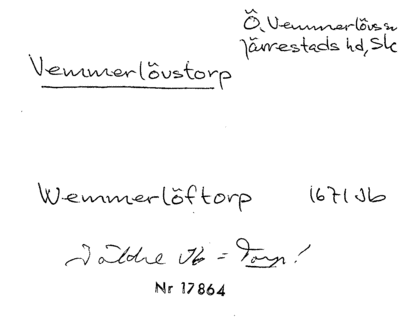 Ö. Vemmerlövs sn
Järrestads hd, Sk
Vemmerlövstorp
Wemmerlöftorp 1671 Jb
I äldre Jb = Torp!
Nr 17864